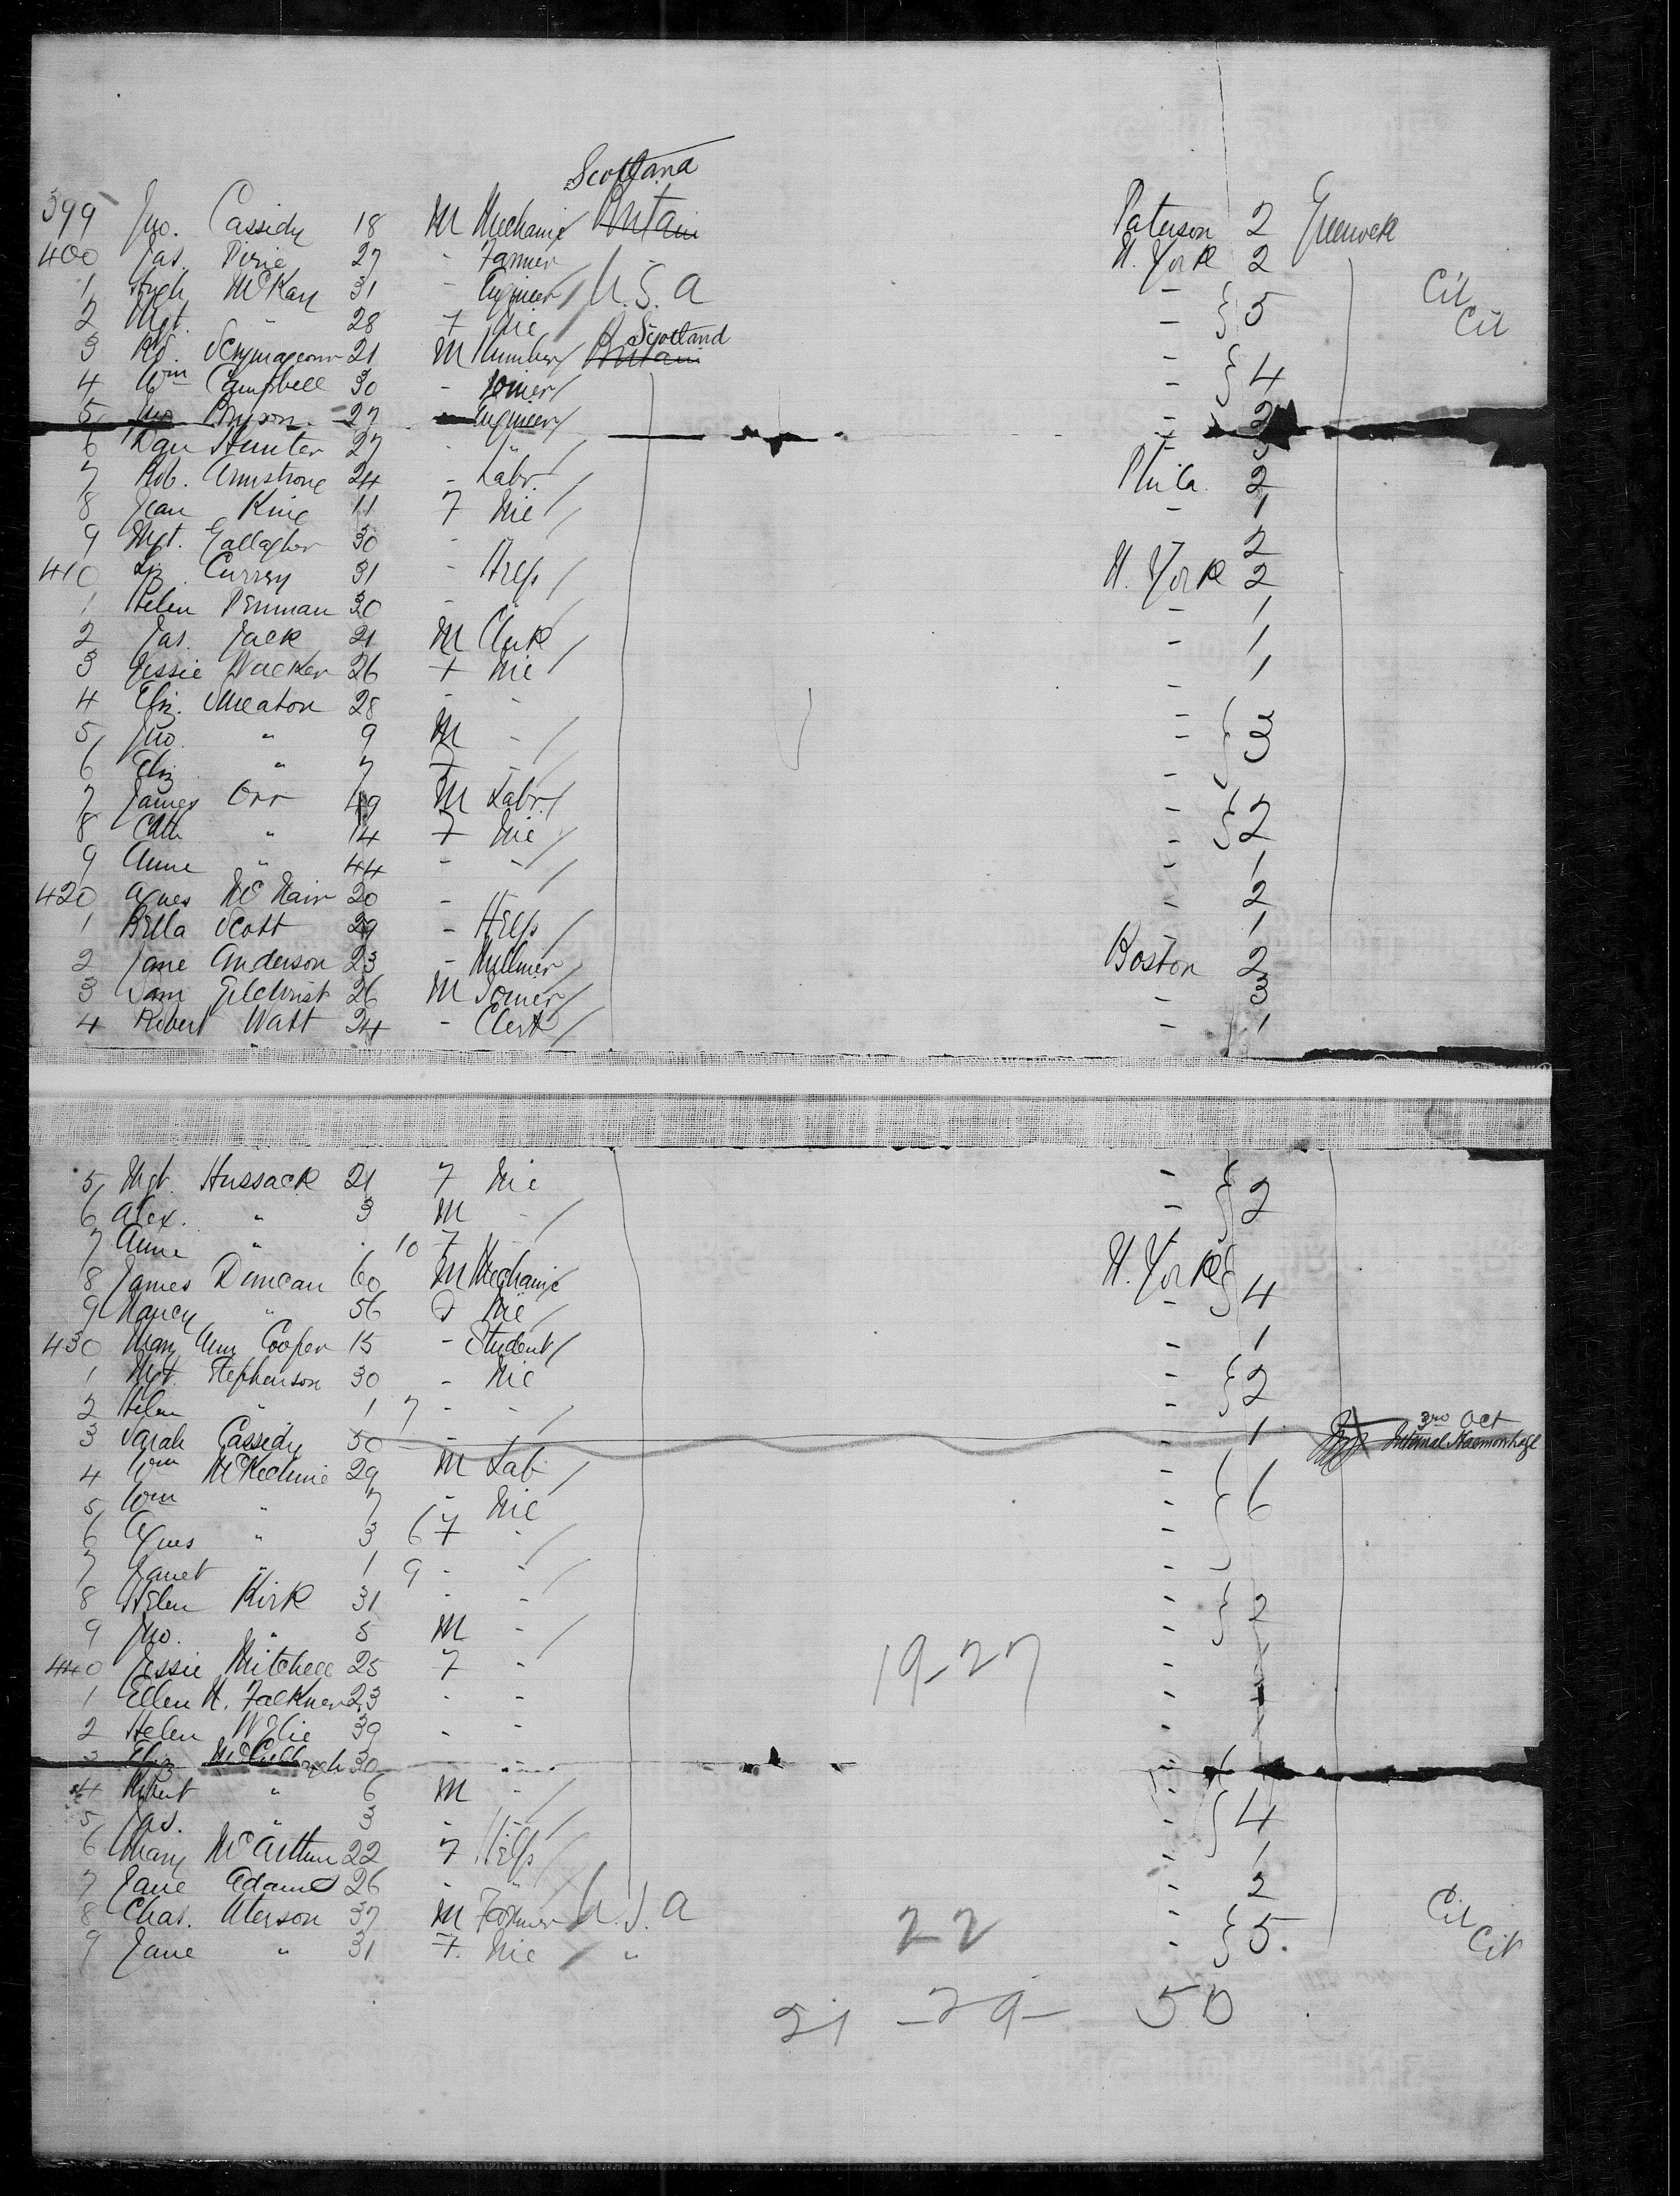 Scotland
399 Jno. Cassidy 18 M Mechanic / Britain Paterson 2 Greenock
400 Jas. Pirie 27 - Farmer N. York 2
1 Hugh McKay 31 - Engineer / U.S.A - { 5 Cit
2 Mgt. " 28 F Nil / - Cit
3 Rd. Scrymageour 21 M Plumber / Britain Scotland -
4 Wm Campbell 30 - Joiner / - { 4
5 Jno Bryson 27 - Engineer / - 2
6 Dan Hunter 27 - " / -
7 Rob. Armstrong 24 - Labr. / Phila. 2
8 Jean King 11 F Nil / - 1
9 Mgt. Gallagher 30 - " / 2
410 Liz. Currey 31 - Help / N. York 2
1 Helen Penman 30 - " / - 1
2 Jas. Jack 21 M Clerk / - 1
3 Jessie Walker 26 F Nil / - 1
4 Eliz. Smeaton 28 - - -
5 Jno. " 9 M - / - { 3
6 Eliz " 7 F - / -
7 James Orr 49 M Labr. / -
8 Cath " 14 F Nil / - { 2
9 Anne " 44 - - / - 1
420 Agnes McNair 20 - - 2
1 Bella Scott 29 - Help / 1
2 Jane Anderson 23 - Milliner / Boston 2
3 Sam Gilchrist 26 M Joiner / - 3
4 Robert Watt 24 - Clerk / - 1
5 Mgt. Hussack 21 F Nil -
6 Alex. " 3 M - / - { 2
7 Anne " . 10 F - -
8 James Duncan 60 M Mechanic N. York
9 Nancy " 56 F Nil / - { 4
430 Mary Ann Cooper 15 - Student / - 1
1 Mgt. Stephenson 30 - Nil -
2 Helen " 1 7 - - / - { 2
3 Sarah Cassidy 50 - / - 1 3rd Oct Internal Haemorrhage
4 Wm McKechnie 29 M Lab / -
5 Wm " 7 - Nil - { 6
6 Agnes " 3 6 F - / -
7 Janet " 1 9 - - / -
8 Helen Kirk 31 - - -
9 Jno. " 5 M - / - { 2
440 Jessie Mitchell 25 F - 19-27 - 1
1 Ellen H. Falkner 23 - - - 1
2 Helen Wylie 39 - - - 1
3 Eliz McCullogh 30 - - -
4 Robert " 6 M - / -
5 Jas. " 3 - - / - { 4
6 Mary McArthur 22 F Help / - 1
7 Jane Adams 26 - " - 2
8 Chas. Uterson 37 M Farmer / U.S.A 22 - Cit
9 Jane " 31 F. Nil / " - { 5. Cit
21 - 29 - 50